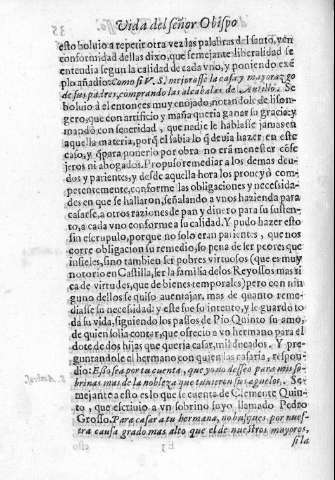 Vida del señor Obispo
esto boluio a repetir otra vez las palabras del santo, y en
conformidad dellas dixo, que semejante liberalidad se
entendia segun la calidad de cada vno, y poniendo exe
plo añadio: Como si V.S. mejorasse la casa y mayorazgo
de sus padres, comprando las alcabalas de Autillo. Se
boluio a el entonces muy enojado, notandole de lison-
gero, que con artificio y maña queria ganar su gracia: y
mandò con seueridad, que nadie le hablasse jamas en
aquella materia, porq̃ el sabia lo q̃ deuia hazer en este
caso, y q̃ para ponerlo por obra no era menester cõse
jeros ni abogados. Propuso remediar a los demas deu-
dos y parientes, y desde aquella hora los proueyò com
petentemente, conforme las obligaciones y necesida-
des en que se hallaron, señalando a vnos hazienda para
casarse, a otros raziones de pan y dinero para su susten-
to, a cada vno conforme a su calidad. Y pudo hazer esto
sin escrupulo, porque no solo eran parientes, que nos
corre obligacion su remedio, so pena de ser peores que
infieles, sino tambien ser pobres virtuosos (que es muy
notorio en Castilla, ser la familia de los Reynosos mas ri
ca de virtudes, que de bienes temporales) pero con nin
guno dellos se quiso auentajar, mas de quanto reme-
diasse su necesidad: y este fue su intento, y le guardò to
da su vida, siguiendo los passos de Pio Quinto su amo,
de quien solia contar, que ofrecio a vn hermano para el
dote de dos hijas que queria casar, mil ducados. Y pre-
guntandole el hermano con quien las casaria, respon-
dio: Esso sea por tu cuenta, que yo no desseo para mis so-
brinas mas de la nobleza que tuuieron sus aguelos. Se-
mejante a esto es lo que se cuenta de Clemente Quin-
to, que escriuio a vn sobrino suyo llamado Pedro
Grosso. Para casar a tu hermana, no busques por nues-
tra causa grado mas alto que el de nuestros mayores,
si la